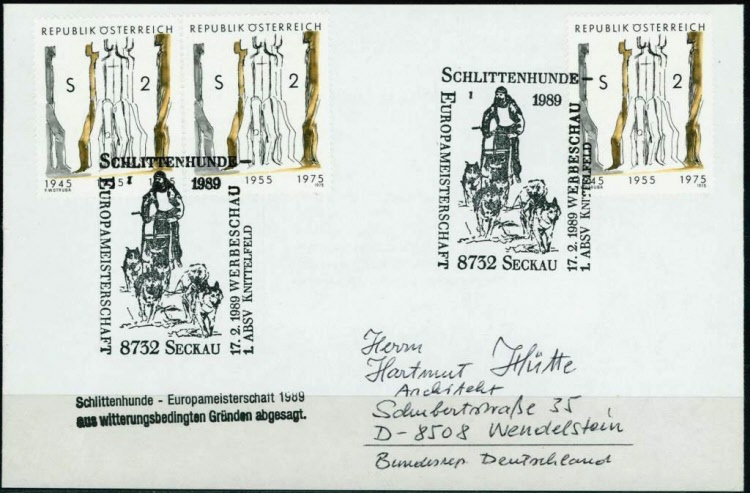 REPUBLIK ÖSTERREICH
S 2
1945 1955 1975
F. WOTRUBA 1975
REPUBLIK ÖSTERREICH
S 2
1955 1975
1975
REPUBLIK ÖSTERREICH
S 2
1945 1955 1975
1975
SCHLITTENHUNDE-
EUROPAMEISTERSCHAFT
1
1989
17. 2. 1989 WERBESCHAU
1. ABSV KNITTELFELD
8732 SECKAU
SCHLITTENHUNDE-
EUROPAMEISTERSCHAFT
1
1989
17. 2. 1989 WERBESCHAU
1. ABSV KNITTELFELD
8732 SECKAU
Herrn
Hartmut Hütte
Architekt
Schubertstraße 35
D-8508 Wendelstein
Bundesrep. Deutschland
Schlittenhunde - Europameisterschaft 1989
aus witterungsbedingten Gründen abgesagt.